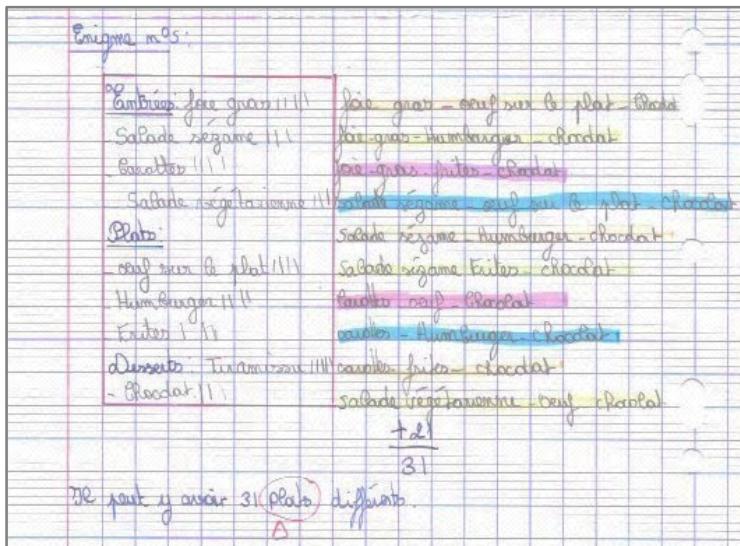 Enigme n°5:
Entrées: foie gras |||||
Salade sézame ||||
Carottes ||||
Salade végétarienne ||||
Plats:
- oeuf sur le plat ||||
- Humburger ||||
- Frites | |||
Desserts: Tiramissu |||||
- Chocolat |||
foie gras - oeuf sur le plat - chocolat
foie-gras-Humburger - chocolat
foie-gras-frites-chocolat
salade sézame - oeuf sur le plat - chocolat
Salade sézame - Humburger - chocolat
Salade sézame Frites - chocolat
Carottes oeuf - Chocolat
carottes - Humburger - Chocolat
carottes - frites - chocolat
salade végétarienne - oeuf chocolat
+21
31
Il peut y avoir 31 plats différents.